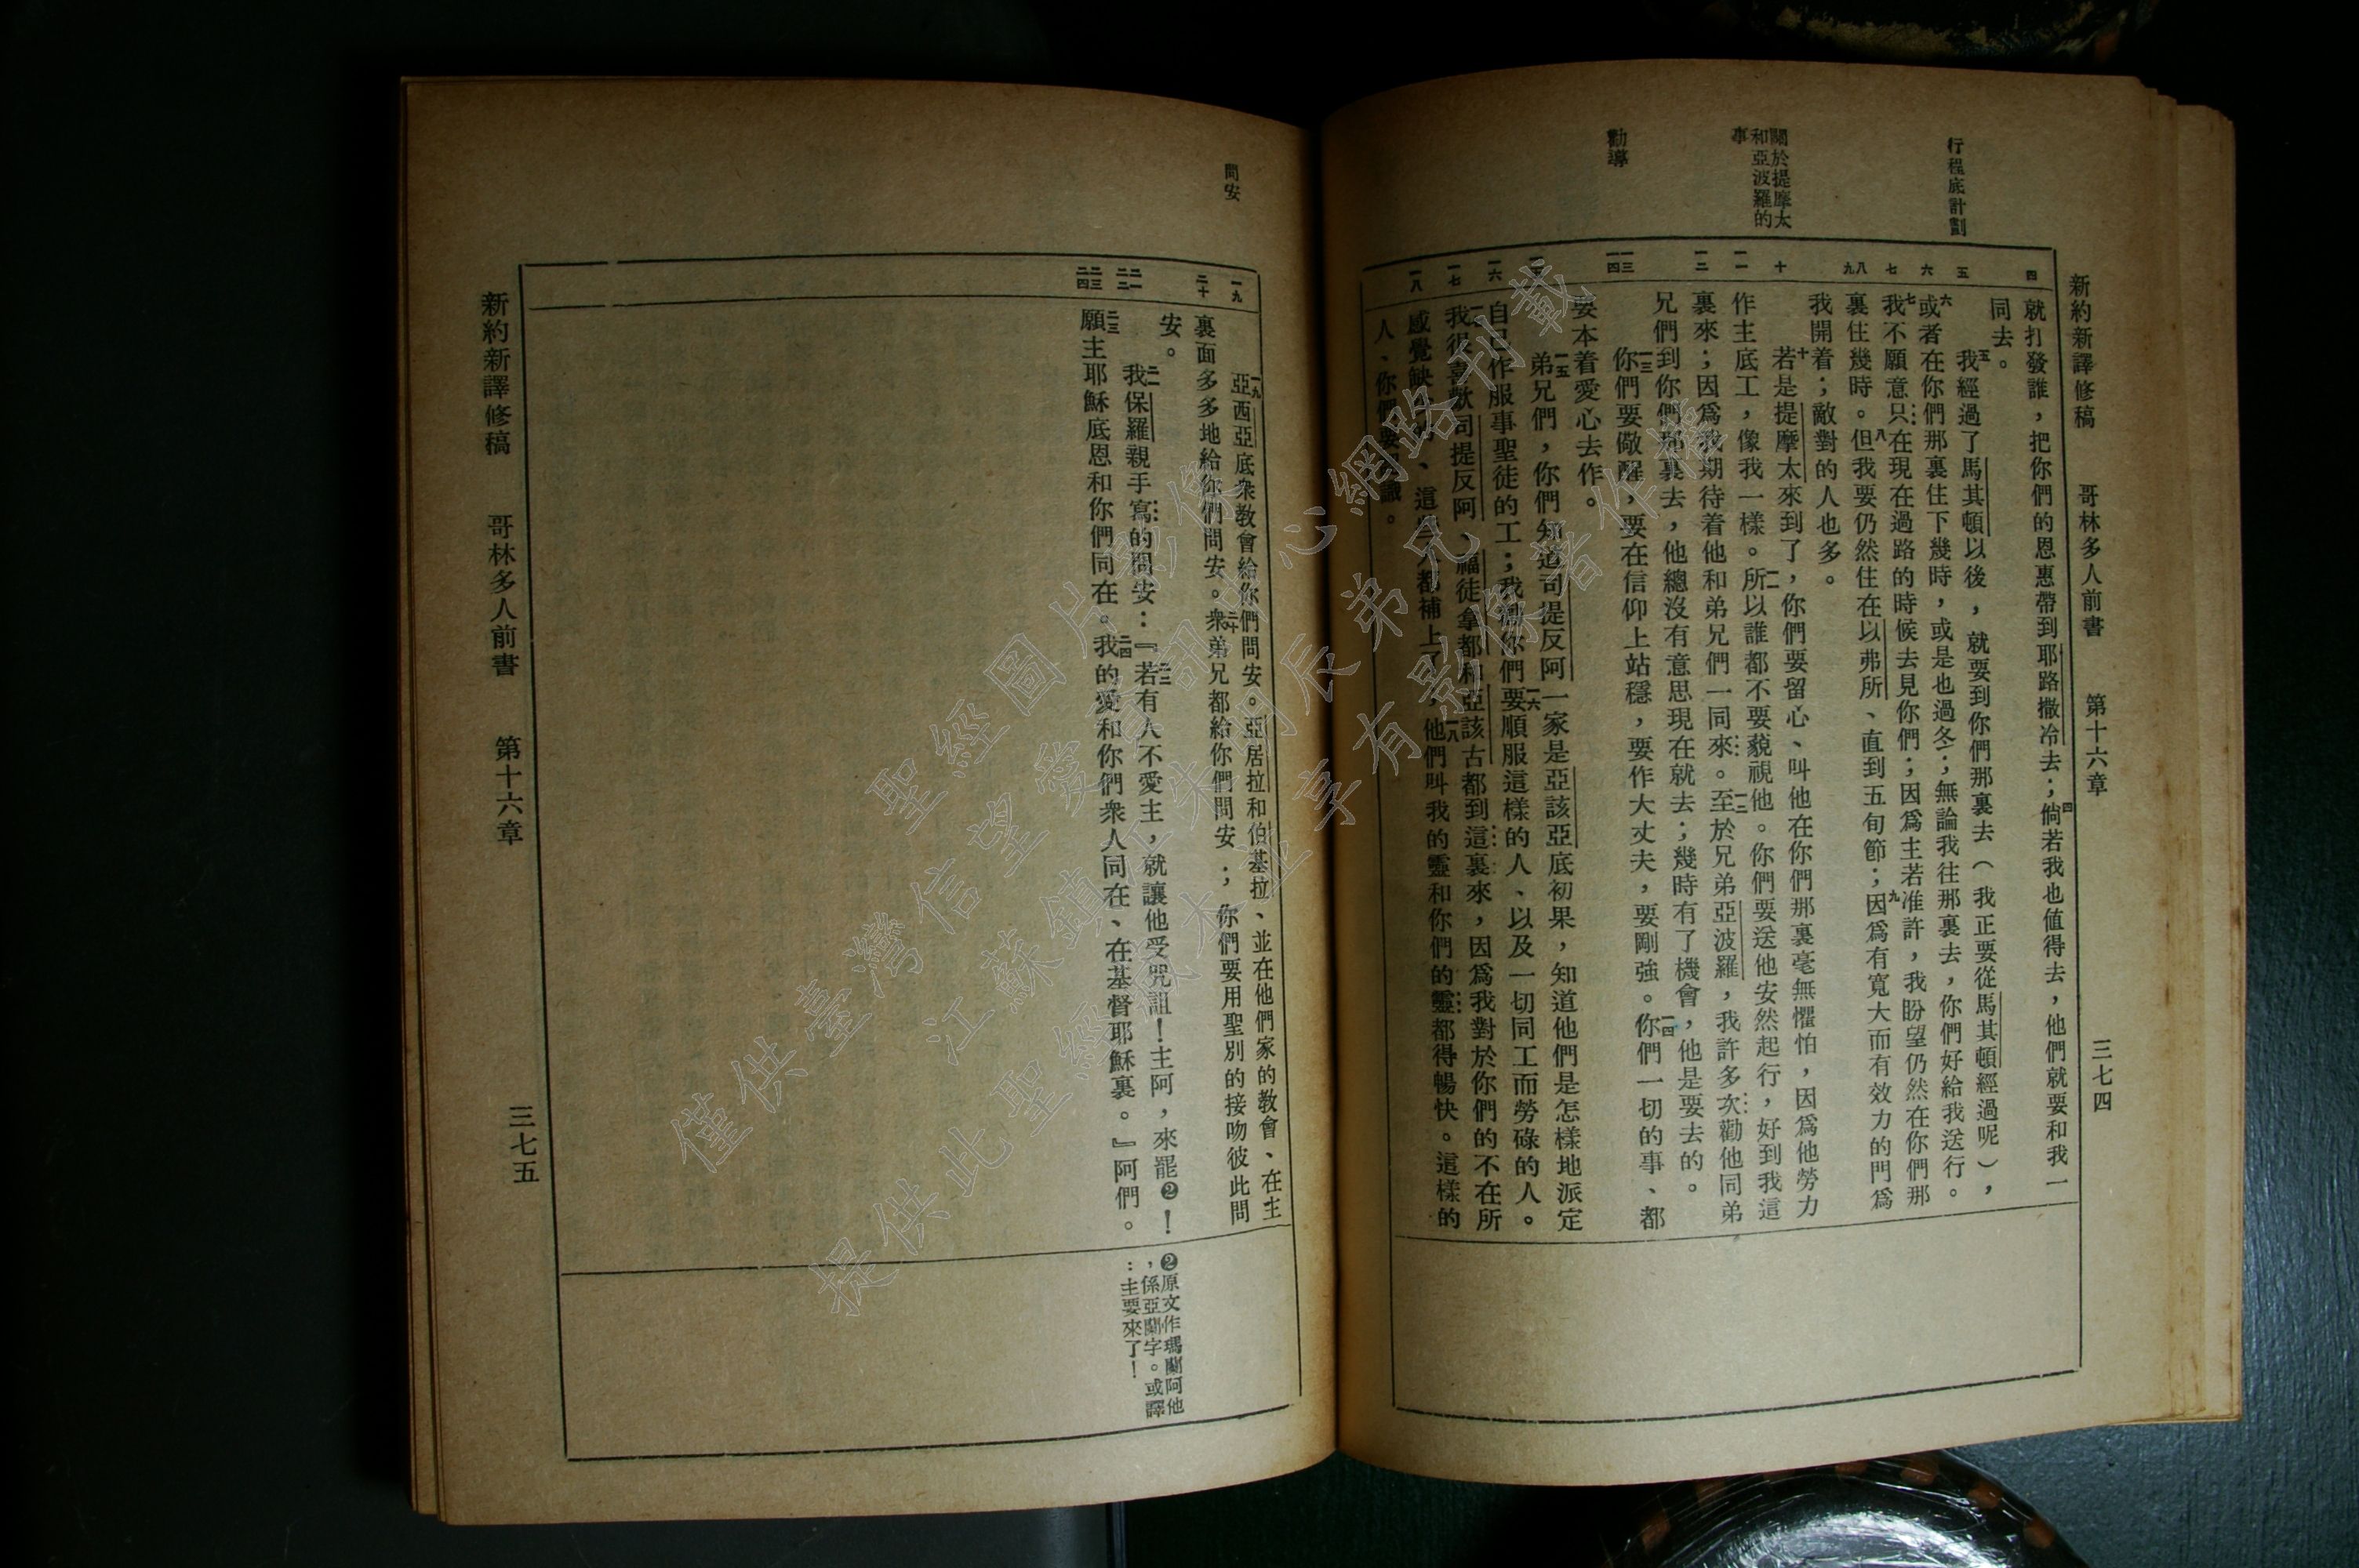 新約新譯修稿 哥林多人前書 第十六章 三七四
行程底計劃
關於提摩太
和亞波羅的
事
勸導
四
五
六
七
八
九
十
一一
一二
一三
一四
一六
一七
一八
就打發誰，把你們的恩惠帶到耶路撒冷去；四倘若我也值得去，他們就要和我一
同去。
五我經過了馬其頓以後，就要到你們那裏去（我正要從馬其頓經過呢），
六或者在你們那裏住下幾時，或是也過冬；無論我往那裏去，你們好給我送行。
七我不願意只在現在過路的時候去見你們；因爲主若准許，我盼望仍然在你們那
裏住幾時。八但我要仍然住在以弗所、直到五旬節；九因爲有寬大而有效力的門爲
我開着；敵對的人也多。
十若是提摩太來到了，你們要留心、叫他在你們那裏毫無懼怕，因爲他勞力
作主底工，像我一樣。一一所以誰都不要藐視他。你們要送他安然起行，好到我這
裏來；因爲我期待着他和弟兄們一同來。一二至於兄弟亞波羅，我許多次勸他同弟
兄們到你們那裏去，他總沒有意思現在就去；幾時有了機會，他是要去的。
一三你們要儆醒，要在信仰上站穩，要作大丈夫，要剛強。一四你們一切的事、都
要本着愛心去作。
一五弟兄們，你們知道司提反阿一家是亞該亞底初果，知道他們是怎樣地派定
自己作服事聖徒的工；我勸你們一六要順服這樣的人、以及一切同工而勞碌的人。
我很喜歡司提反阿、福徒拿都和亞該古都到這裏來，因爲我對於你們的不在所
感覺缺的、這些人都補上了，一八他們叫我的靈和你們的靈都得暢快。這樣的
人、你們要識。
問安
一九
二十
二一
二二
二三
二四
一九亞西亞底衆教會給你們問安。亞居拉和伯基拉、並在他們家的教會、在主
裏面多多地給你們問安。二十衆弟兄都給你們問安；你們要用聖別的接吻彼此問
安。
二一我保羅親手寫的問安：『二二若有人不愛主，就讓他受咒詛！主阿，來罷❷！
二三願主耶穌底恩和你們同在。二四我的愛和你們衆人同在、在基督耶穌裏。』阿們。
❷原文作瑪蘭阿他
，係亞蘭字。或譯
：主要來了！
新約新譯修稿 哥林多人前書 第十六章 三七五
聖經圖片影像
僅供臺灣信望愛資訊中心網路刊載
江蘇鎮江朱明辰弟兄
提供此聖經紙本並享有影像著作權